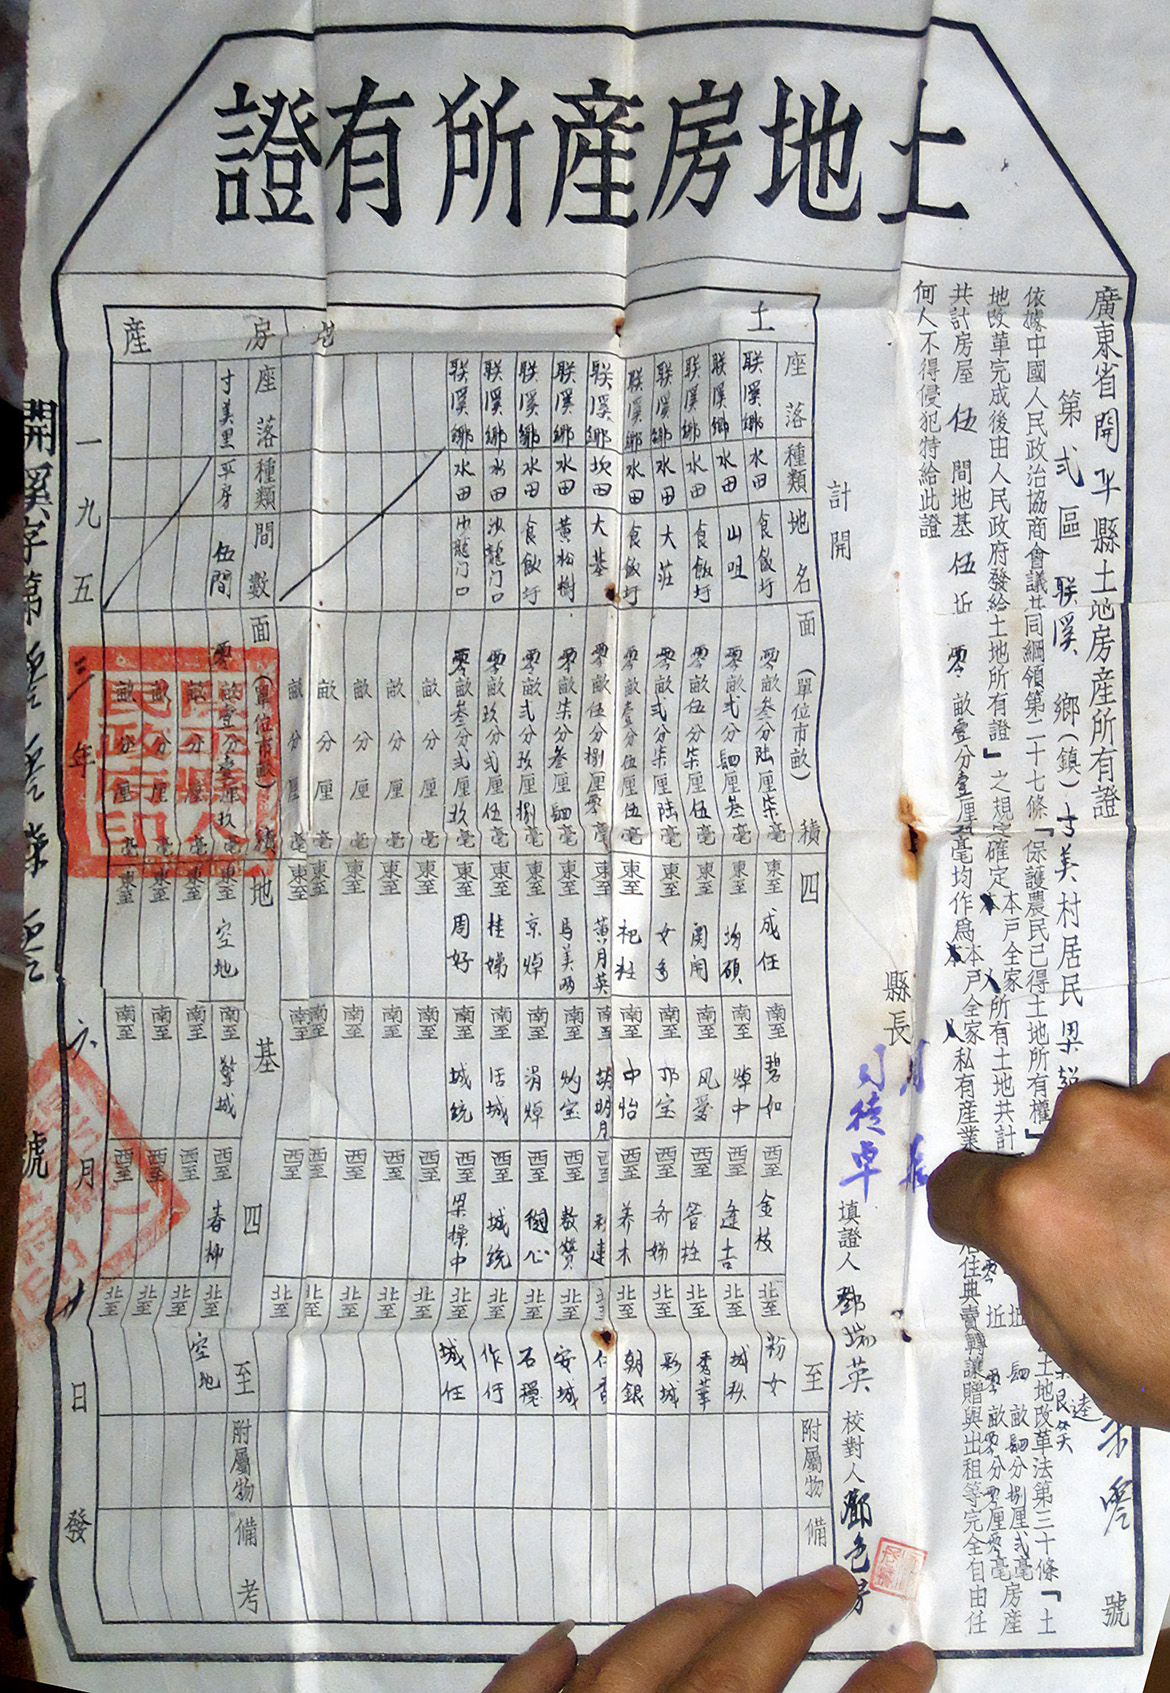 土地房産所有證
廣東省開平縣土地房産所有證
第弍區 联溪 鄉(鎮)寸美村居民梁
號
依據中國人民政治協商會議共同綱領第二十七條「保護農民已得土地所有權」
土地改革法第三十條「土
地改革完成後由人民政府發給土地所有證」之規定確定本戶全家所有土地共計
畝 分捌厘弍毫房産
共計房屋 伍 間地基 伍 坵 零 畝壹分壹厘 毫均作爲本戶全家私有産業
居住典賣轉讓贈與出租等完全自由任
何人不得侵犯特給此證
計開
縣長
司徒卓
填證人 鄧瑞英 校對人
土
座落 種類 地名 面積(單位市畝) 四至 附屬物 備
联溪鄉 水田 食飯圩 零畝叁分陆厘柒毫 東至 成任 南至 碧如 西至 金枝 北至 粉女
联溪鄉 水田 山咀 零畝弍分 厘叁毫 東至 均碩 南至 焯中 西至 逢吉 北至 城秋
联溪鄉 水田 食飯圩 零畝伍分柒厘伍毫 東至 南至 风爱 西至 管柱 北至 秀華
联溪鄉 水田 大莊 零畝弍分柒厘陆毫 東至 女多 南至 西至 齐娣 北至 彩城
联溪鄉 水田 食飯圩 零畝壹分伍厘伍毫 東至 杞柱 南至 中怡 西至 养木 北至 朝銀
联溪鄉 坎田 大基 零畝伍分捌厘零毫 東至 黃月英 南至 胡明月 西至 北至
联溪鄉 水田 黃松樹 零畝柒分叁厘 毫 東至 馬美两 南至 灼宝 西至 教贊 北至 安城
联溪鄉 水田 食飯圩 零畝弍分玖厘捌毫 東至 京焯 南至 涓焯 西至 北至 石穩
联溪鄉 水田 沙龍门口 零畝玖分弍厘伍毫 東至 桂娣 南至 活城 西至 城統 北至 作仔
联溪鄉 水田 沙龍门口 零畝叁分弍厘玖毫 東至 周好 南至 城統 西至 梁操中 北至 城任
畝 分 厘 毫 東至 南至 西至 北至
畝 分 厘 毫 東至 南至 西至 北至
畝 分 厘 毫 東至 南至 西至 北至
畝 分 厘 毫 東至 南至 西至 北至
畝 分 厘 毫 東至 南至 西至 北至
地
房産
座落 間數 種類 面積(單位市畝) 地基四至 附屬物 備考
寸美里 平房 伍間 零畝壹分壹厘玖毫 東至 空地 南至 擎城 西至 春柳 北至 空地
畝 分 厘 毫 東至 南至 西至 北至
畝 分 厘 毫 東至 南至 西至 北至
畝 分 厘 毫 東至 南至 西至 北至
一九五三年六月十日發
開溪字第 零 零 柒 零 號